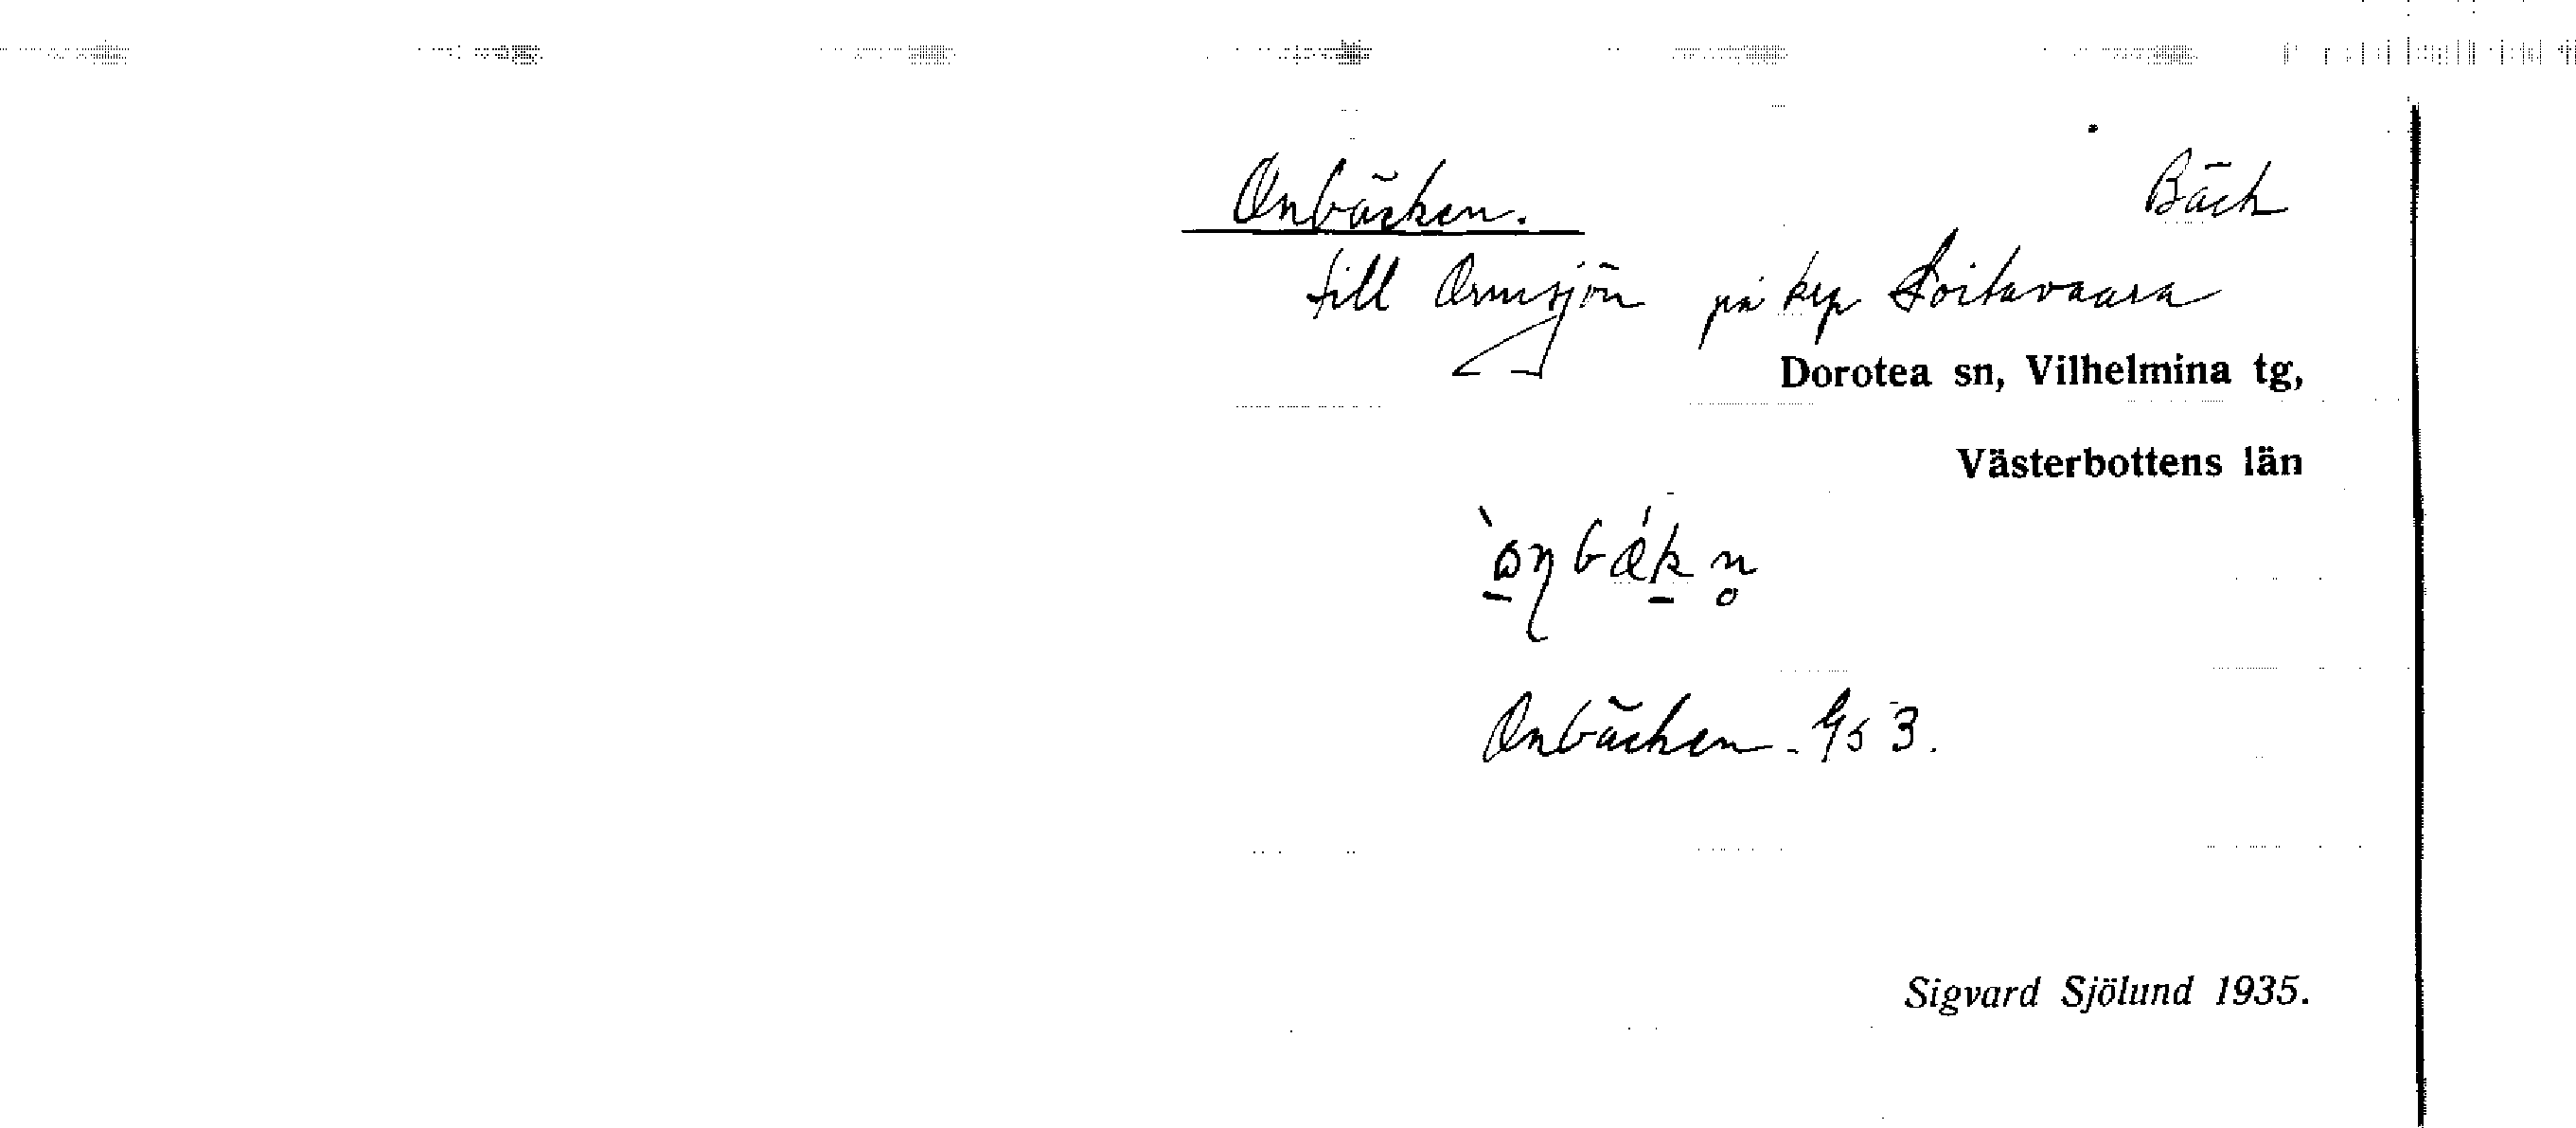 Onbäcken. Bäck
till Ormsjön på krp Avitavaara
Dorotea sn, Vilhelmina tg,
Västerbottens län
Onbäcken - G53.
Sigvard Sjölund 1935.